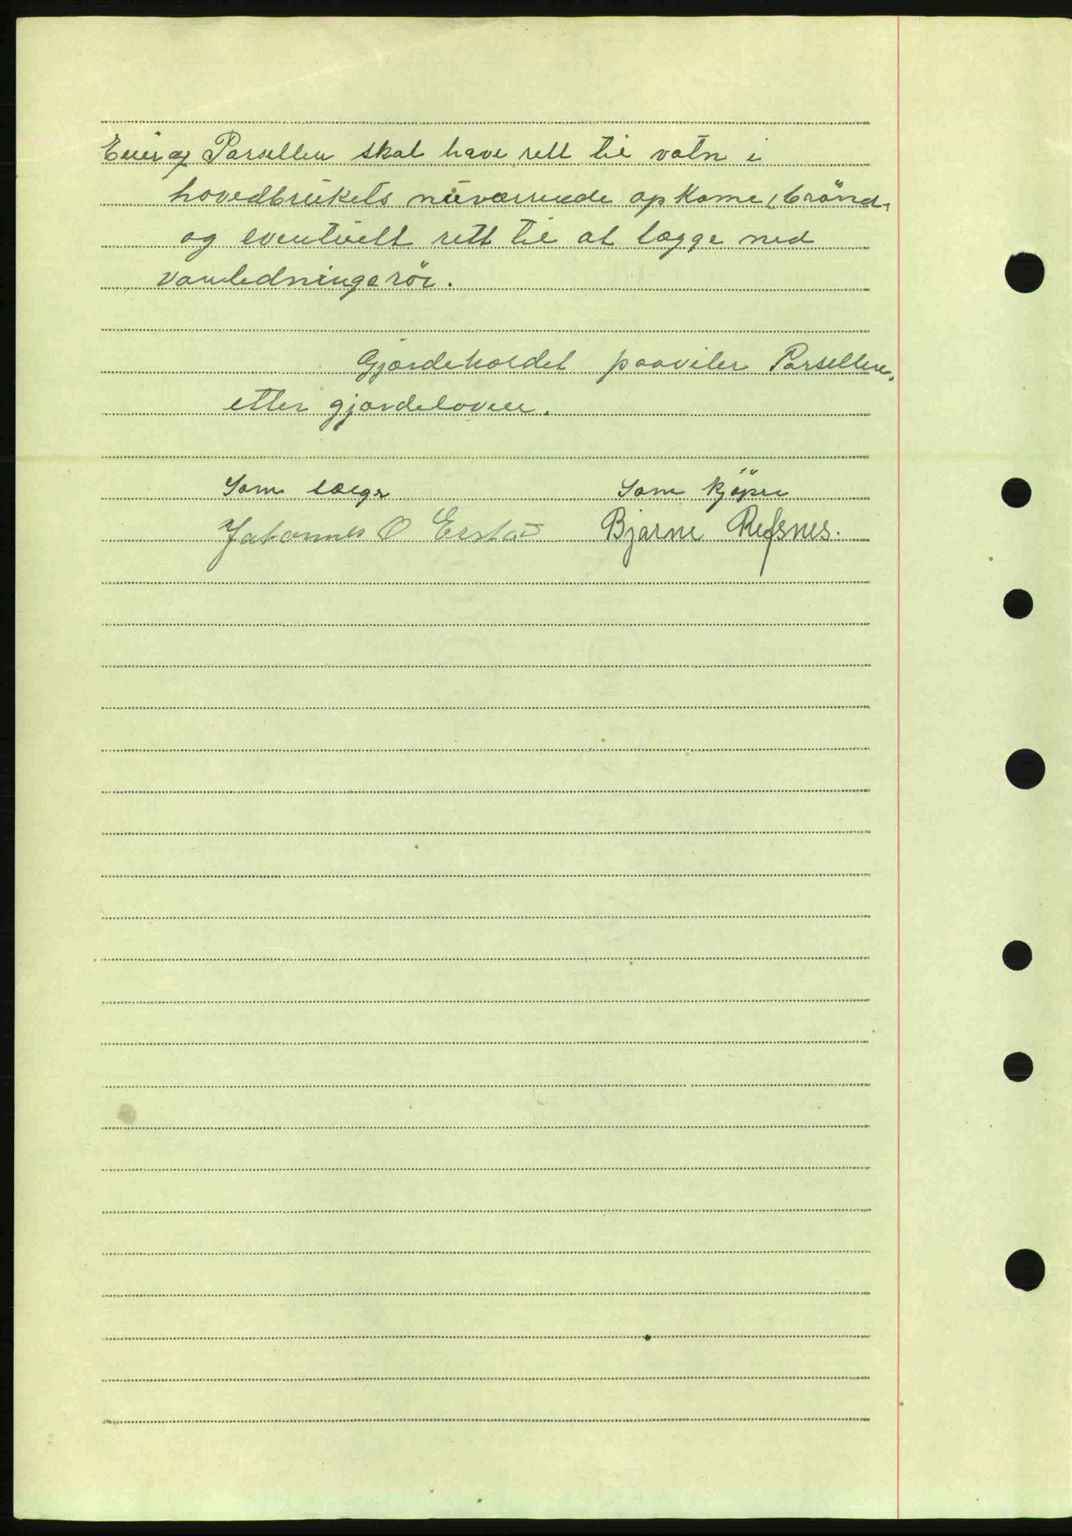 Eier af Parsellen skal have rett til vatn i
hovedbrukets nuværende opkome, brönd,
og eventuelt rett til at lægge ned
vanledningsrör.
Gjærdeholdet paaviler Parsellen,
etter gjærdeloven.
Som selgr Som kjöper
Johannes O Erstad Bjarne Refsnes.